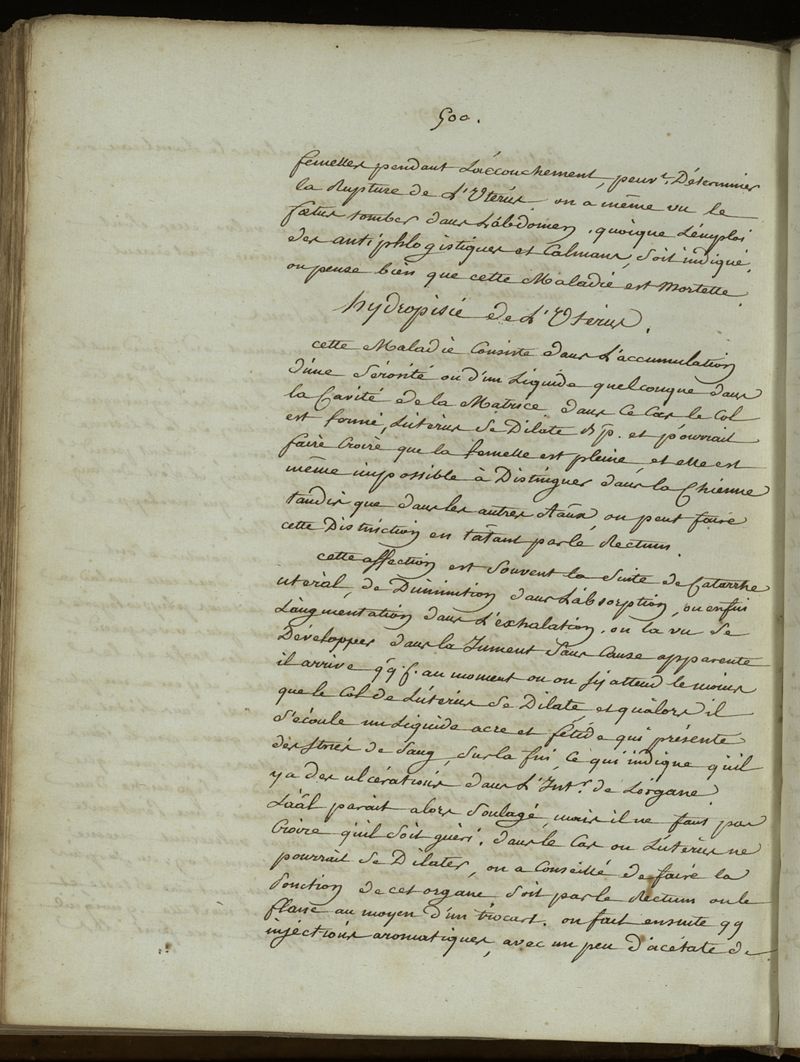 500.
femelles pendant L'accouchement, peuvt. Déterminer
la Rupture de L'Uterus. on a même vu le
fœtus tomber dans L'abdomen. quoique L'emploi
des antiphlogistiques et Calmans, soit indiqué,
on pense bien que cette Maladié est Mortelle.
hydropisié de L'Uterus.
cette Maladie Consiste dans L'accumulation
d'une Sérosité ou d'un Liquide quelconque dans
la Cavité de la Matrice. dans ce Cas le Col
est fermé, L'uterus se Dilate et pourrait
faire croire que la femelle est pleine et elle est
même impossible à Distinguer dans la Chienne
tandis que dans les autres on peut faire
cette Distinction en tâtant par le Rectum.
cette affection est Souvent la Suite de Catarrhe
uteral, de Diminution dans L'absorption, ou enfin
L'augmentation dans L'exhalation. on la vu se
Développer dans la Jument Sans Cause apparente
il arrive qq. f. au moment ou on s'y attend le moins
que le Col de L'uterus se Dilate, et qu'alors il
s'écoule un Liquide acre et fétide qui présente
des stries de Sang, sur la fin, ce qui indique qu'il
y a des ulcérations dans L'Intr. de L'organe.
L'aâl parait alors Soulagé, mais il ne faut pas
Croire qu'il soit guéri. dans le Cas ou L'uterus ne
pourrait se Dilater, on a Conseillé de faire la
Ponction de cet organe soit par le Rectum ou le
flanc au moyen d'un trocart. on fait ensuite qq
injections aromatiques, avec un peu d'acétate de